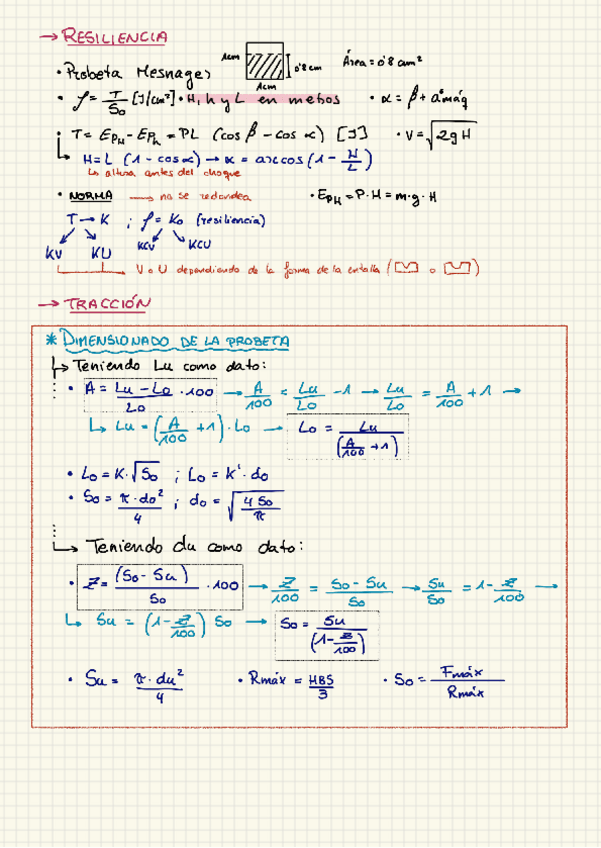 → RESILIENCIA
1cm
0'8 cm
1cm
Área = 0'8 cm²
• Probeta Mesnager
• ρ = T/S₀ [J/cm²] • H, h y L en metros • α = β + aºmáq
• T = EpH - Eph = PL (cos β - cos α) [J] • V = √2gH
↳ H = L (1 - cos α) → α = arccos (1 - H/L)
↳ altura antes del choque
• NORMA → no se redondea • EpH = P·H = m·g·H
T → K ; ρ = K₀ (resiliencia)
KV KU KCV KCU
→ V o U dependiendo de la forma de la entalla ( o )
→ TRACCIÓN
* DIMENSIONADO DE LA PROBETA
↳ Teniendo Lu como dato:
• A = Lu - Lo / Lo · 100 → A/100 = Lu/Lo - 1 → Lu/Lo = A/100 + 1 →
↳ Lu = (A/100 + 1) · Lo → Lo = Lu / (A/100 + 1)
• Lo = K·√So ; Lo = K' · do
• So = π·do²/4 ; do = √4So/π
↳ Teniendo du como dato:
• Z = (So - Su)/So · 100 → Z/100 = So - Su/So → Su/So = 1 - Z/100 →
↳ Su = (1 - Z/100) So → So = Su / (1 - Z/100)
• Su = π·du²/4 • Rmáx = HBS/3 • So = Fmáx/Rmáx